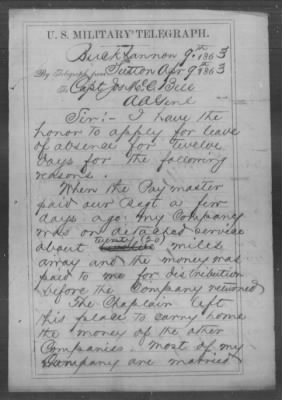 U. S. MILITARY TELEGRAPH.
Buckhannon 9.th 1863
By Telegraph from Sutton Apr 9th 1863
To Capt Jos. C.
A A Genl
Sir:- I have the
honor to apply for leave
of absence for twelve
days for the following
reasons.
When the Pay master
paid our Regt a few
days ago my Company
was on detached service
about twenty (20) miles
array and the money was
paid to me for distribution
before the Company returned
The Chaplain left
this place to carry home
the money of the other
Companies. Most of my
Company are married